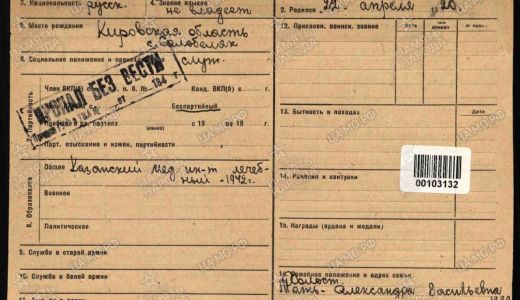 3. Национальность русск. 4. Знание языков
не владеет
5. Место рождения Кировская область
с. Соловецкая
6. Социальное положение и происхождение служ.
ПРОПАЛ БЕЗ ВЕСТИ
7. Партийность
Член ВКП(б) с г. п. б. № Канд. ВКП(б) с г.
Беспартийный
в др. партиях с 19 по 19 г.
(каких)
Парт. взыскания и измен. партийности
8. Образование
Общее Казанский мед. ин-т лечеб-
ный - 1942 г.
Военное
Политическое
9. Служба в старой армии
10. Служба в белой армии
2. Родился 22 апреля 1920.
12. Присвоен. воинск. звание
13. Бытность в походах Дата
00103132
14. Ранения и контузии
15. Награды (ордена и медали)
16. Семейное положение и адрес семьи
Холост.
Мать - Александра Васильевна
ЦАМО.РФ